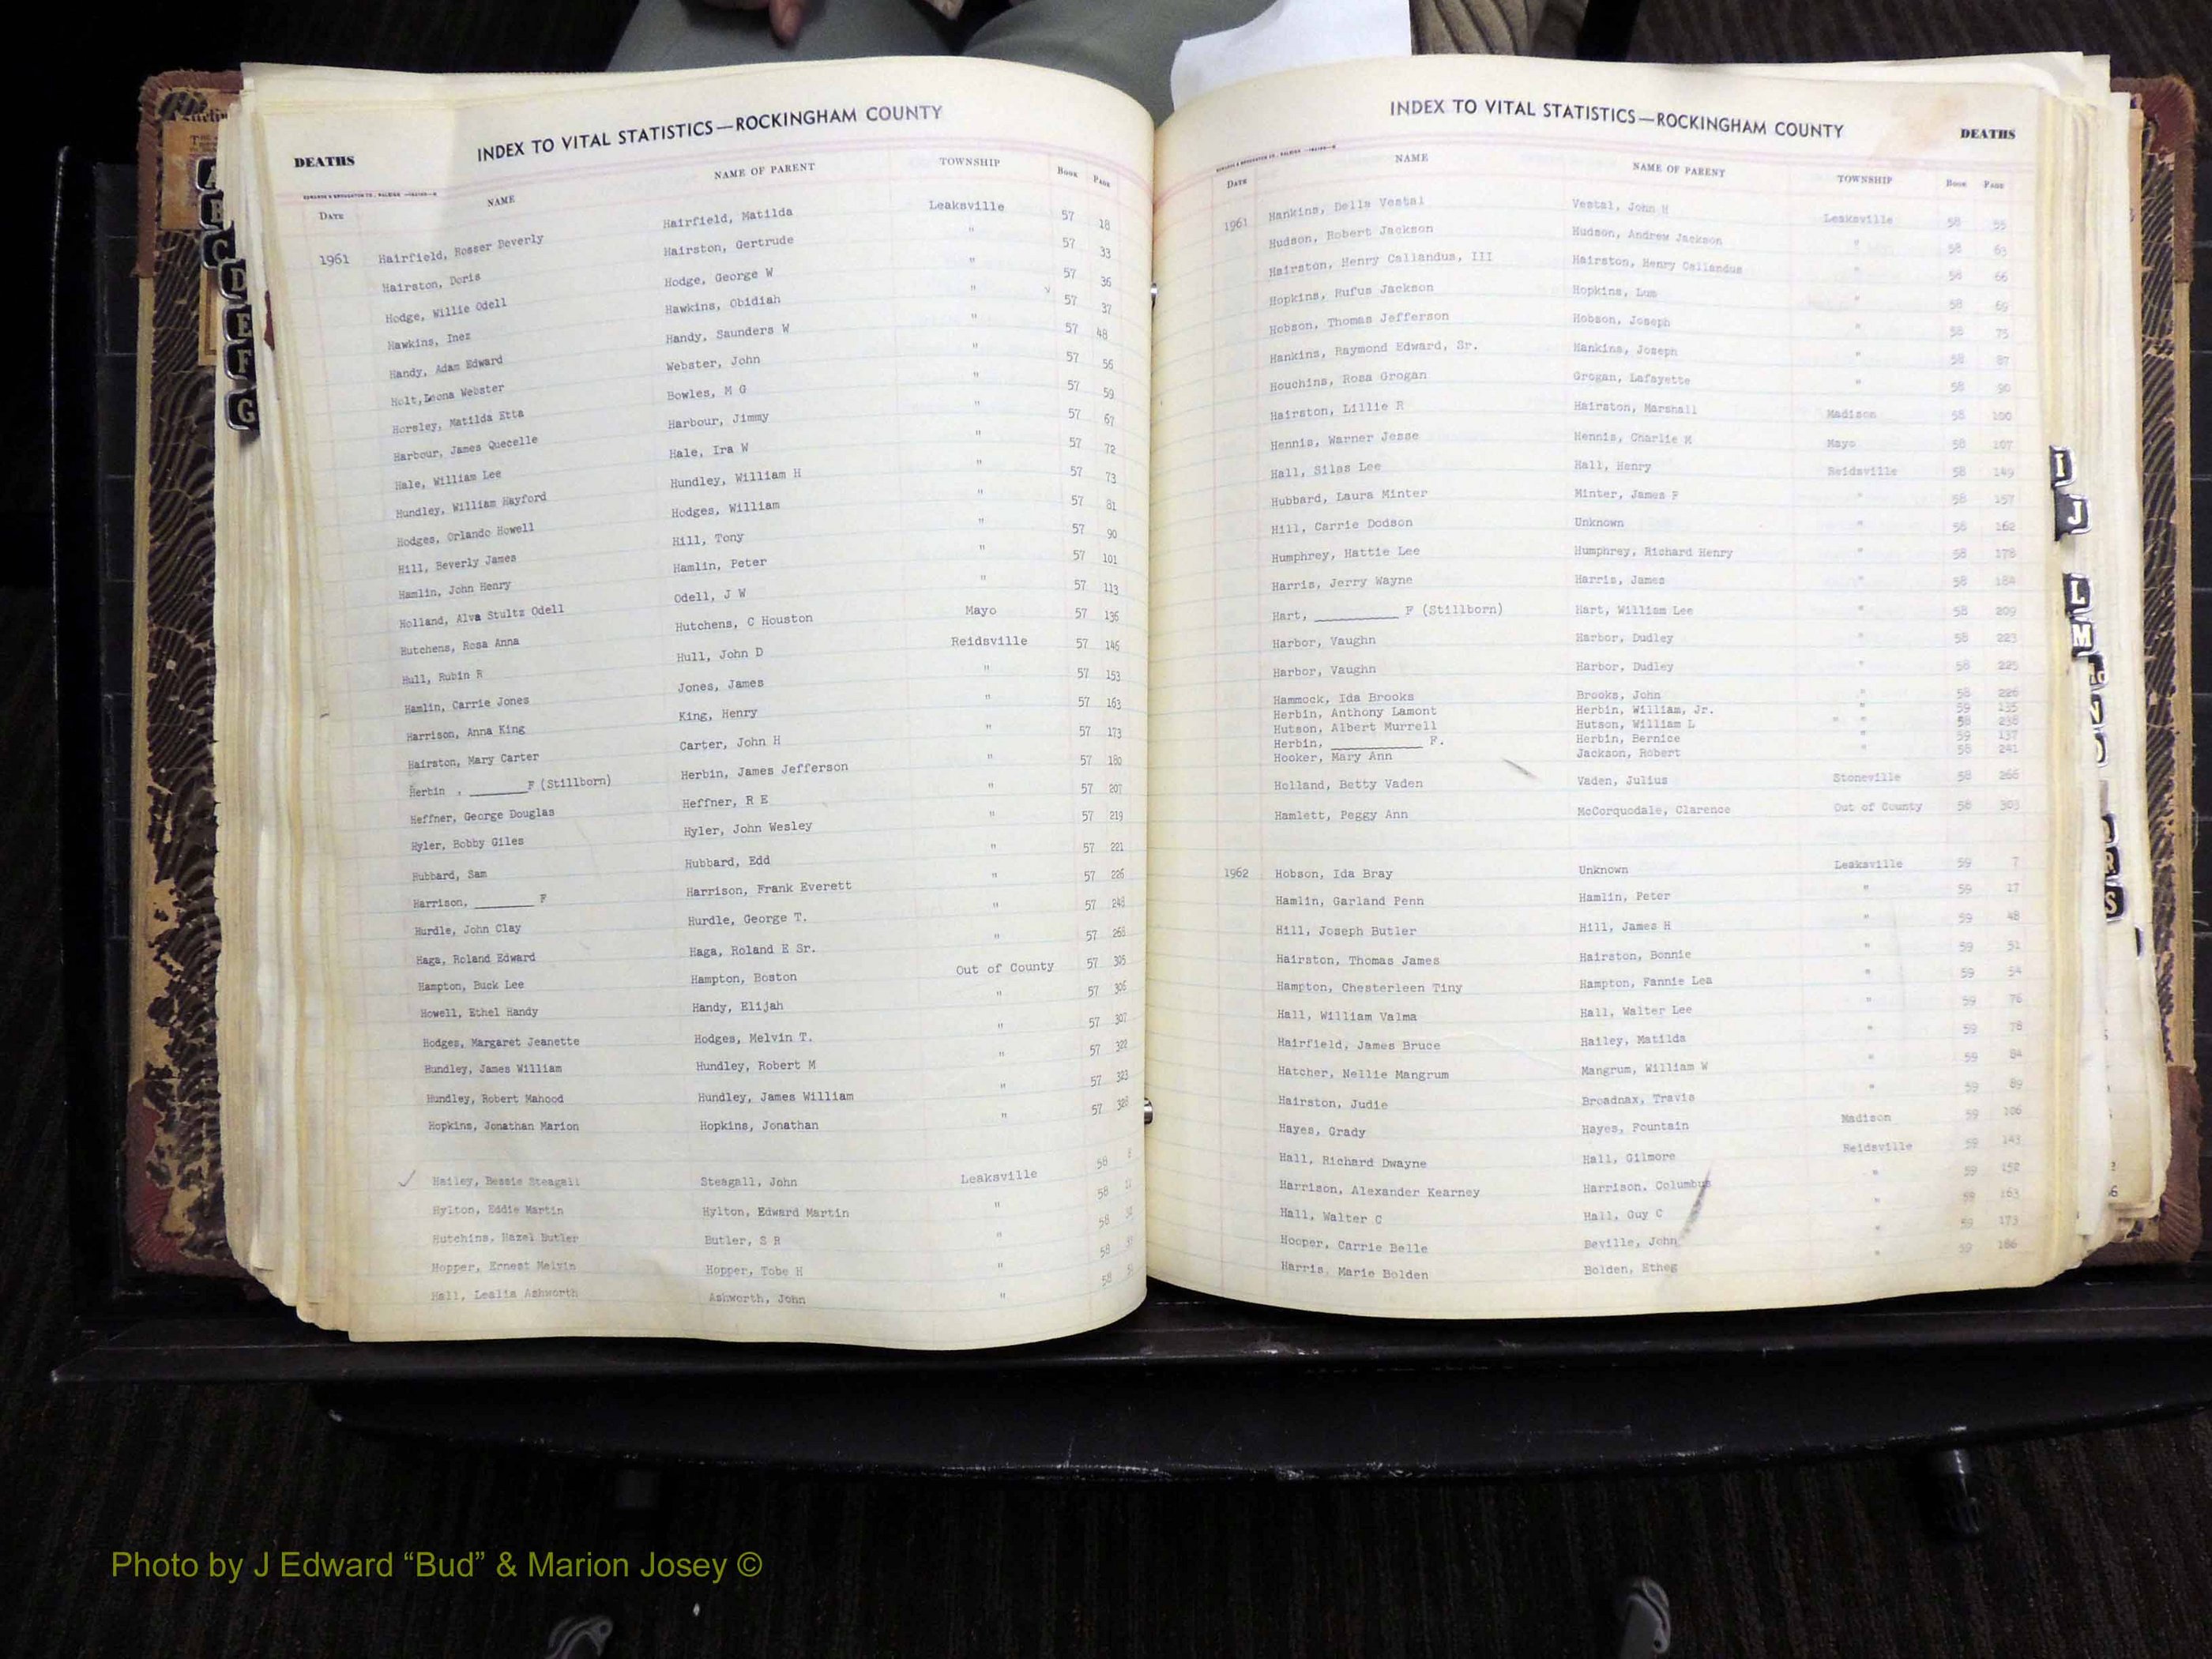 INDEX TO VITAL STATISTICS—ROCKINGHAM COUNTY
DEATHS
DATE NAME NAME OF PARENT TOWNSHIP BOOK PAGE
1961 Hairfield, Rosser Beverly Hairfield, Matilda Leaksville 57 18
Hairston, Doris Hairston, Gertrude " 57 33
Hodge, Willie Odell Hodge, George W " 57 36
Hawkins, Inez Hawkins, Obidiah " 57 37
Handy, Adam Edward Handy, Saunders W " 57 48
Holt, Leona Webster Webster, John " 57 56
Horsley, Matilda Etta Bowles, M G " 57 59
Harbour, James Quecelle Harbour, Jimmy " 57 67
Hale, William Lee Hale, Ira W " 57 72
Hundley, William Hayford Hundley, William H " 57 73
Hodges, Orlando Howell Hodges, William " 57 81
Hill, Beverly James Hill, Tony " 57 90
Hamlin, John Henry Hamlin, Peter " 57 101
Holland, Alva Stultz Odell Odell, J W " 57 113
Hutchens, Rosa Anna Hutchens, C Houston Mayo 57 136
Hull, Rubin R Hull, John D Reidsville 57 146
Hamlin, Carrie Jones Jones, James " 57 153
Harrison, Anna King King, Henry " 57 163
Hairston, Mary Carter Carter, John H " 57 173
Herbin , ________F (Stillborn) Herbin, James Jefferson " 57 180
Heffner, George Douglas Heffner, R E " 57 207
Hyler, Bobby Giles Hyler, John Wesley " 57 219
Hubbard, Sam Hubbard, Edd " 57 221
Harrison, ________ F Harrison, Frank Everett " 57 226
Hurdle, John Clay Hurdle, George T. " 57 248
Haga, Roland Edward Haga, Roland E Sr. " 57 268
Hampton, Buck Lee Hampton, Boston Out of County 57 305
Howell, Ethel Handy Handy, Elijah " 57 306
Hodges, Margaret Jeanette Hodges, Melvin T. " 57 307
Hundley, James William Hundley, Robert M " 57 322
Hundley, Robert Mahood Hundley, James William " 57 323
Hopkins, Jonathan Marion Hopkins, Jonathan " 57 328
Hailey, Bessie Steagall Steagall, John Leaksville 58
Hylton, Eddie Martin Hylton, Edward Martin " 58
Hutchins, Hazel Butler Butler, S R " 58
Hopper, Ernest Melvin Hopper, Tobe H " 58
Hall, Lealia Ashworth Ashworth, John " 58
INDEX TO VITAL STATISTICS—ROCKINGHAM COUNTY
DEATHS
DATE NAME NAME OF PARENT TOWNSHIP BOOK PAGE
1961 Hankins, Della Vestal Vestal, John H Leaksville 58 55
Hudson, Robert Jackson Hudson, Andrew Jackson " 58 63
Hairston, Henry Callandus, III Hairston, Henry Callandus " 58 66
Hopkins, Rufus Jackson Hopkins, Lum " 58 69
Hobson, Thomas Jefferson Hobson, Joseph " 58 75
Hankins, Raymond Edward, Sr. Hankins, Joseph " 58 87
Houchins, Rosa Grogan Grogan, Lafayette " 58 90
Hairston, Lillie R Hairston, Marshall Madison 58 100
Hennis, Warner Jesse Hennis, Charlie M Mayo 58 107
Hall, Silas Lee Hall, Henry Reidsville 58 149
Hubbard, Laura Minter Minter, James F " 58 157
Hill, Carrie Dodson Unknown " 58 162
Humphrey, Hattie Lee Humphrey, Richard Henry " 58 178
Harris, Jerry Wayne Harris, James " 58 184
Hart, ____________ F (Stillborn) Hart, William Lee " 58 209
Harbor, Vaughn Harbor, Dudley " 58 223
Harbor, Vaughn Harbor, Dudley " 58 225
Hammock, Ida Brooks Brooks, John " 58 226
Herbin, Anthony Lamont Herbin, William, Jr. " 59 135
Hutson, Albert Murrell Hutson, William L " " 58 238
Herbin, ____________ F. Herbin, Bernice " 59 137
Hooker, Mary Ann Jackson, Robert " 58 241
Holland, Betty Vaden Vaden, Julius Stoneville 58 266
Hamlett, Peggy Ann McCorquodale, Clarence Out of County 58 303
1962 Hobson, Ida Bray Unknown Leaksville 59 7
Hamlin, Garland Penn Hamlin, Peter " 59 17
Hill, Joseph Butler Hill, James H " 59 48
Hairston, Thomas James Hairston, Bonnie " 59 51
Hampton, Chesterleen Tiny Hampton, Fannie Lea " 59 54
Hall, William Valma Hall, Walter Lee " 59 76
Hairfield, James Bruce Hailey, Matilda " 59 78
Hatcher, Nellie Mangrum Mangrum, William W " 59 84
Hairston, Judie Broadnax, Travis " 59 89
Hayes, Grady Hayes, Fountain Madison 59 106
Hall, Richard Dwayne Hall, Gilmore Reidsville 59 143
Harrison, Alexander Kearney Harrison. Columbus " 59 152
Hall, Walter C Hall, Guy C " 59 163
Hooper, Carrie Belle Beville, John " 59 173
Harris, Marie Bolden Bolden, Etheg " 59 186
A
B
C
D
E
F
G
I
J
L
M
N
O
R
S
Photo by J Edward “Bud” & Marion Josey ©